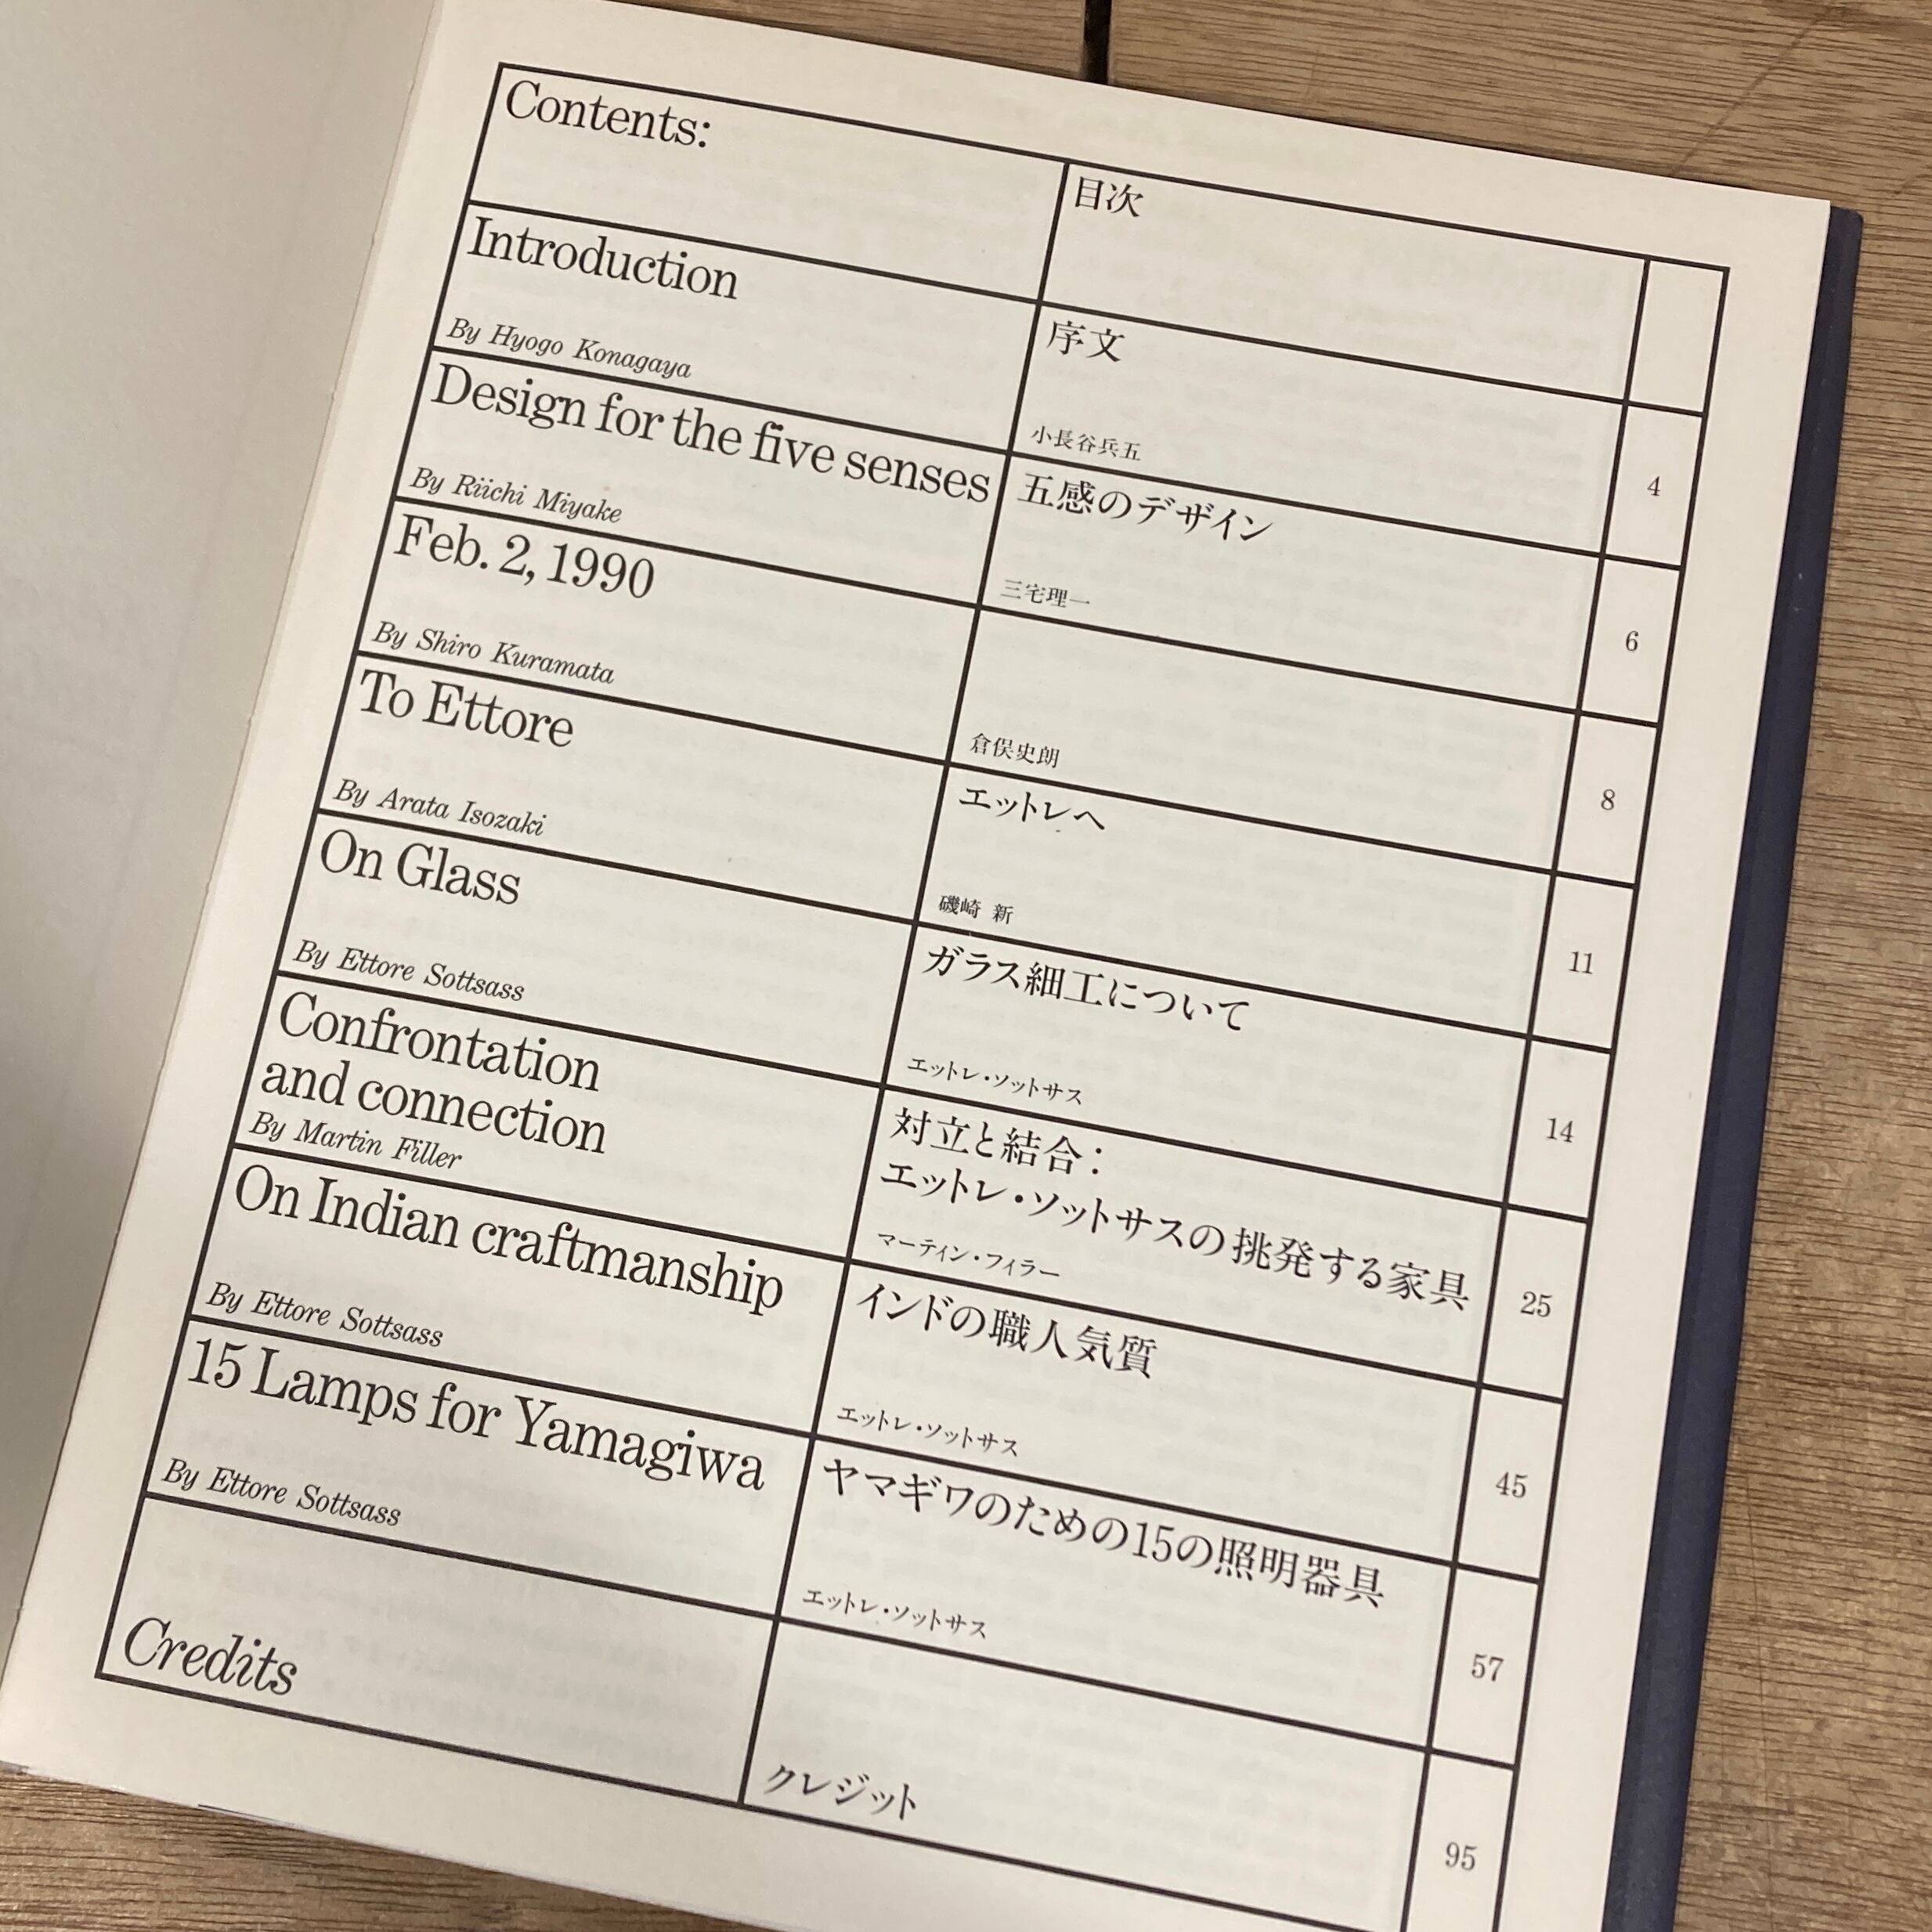 Contents:
目次
Introduction
By Hyogo Konagaya
序文
小長谷兵五
4
Design for the five senses
By Riichi Miyake
五感のデザイン
三宅理一
6
Feb. 2, 1990
By Shiro Kuramata
倉俣史朗
8
To Ettore
By Arata Isozaki
エットレへ
磯崎 新
11
On Glass
By Ettore Sottsass
ガラス細工について
エットレ・ソットサス
14
Confrontation
and connection
By Martin Filler
対立と結合:
エットレ・ソットサスの挑発する家具
マーティン・フィラー
25
On Indian craftmanship
By Ettore Sottsass
インドの職人気質
エットレ・ソットサス
45
15 Lamps for Yamagiwa
By Ettore Sottsass
ヤマギワのための15の照明器具
エットレ・ソットサス
57
Credits
クレジット
95